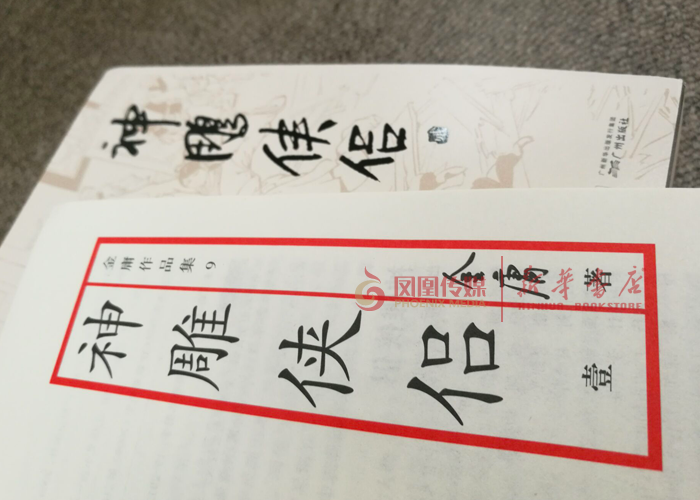 神雕侠侣
广州出版社
金庸作品集 9
金庸 著
神雕侠侣
壹
凤凰传媒
PHOENIX MEDIA
新华书店
XINHUA BOOKSTORE